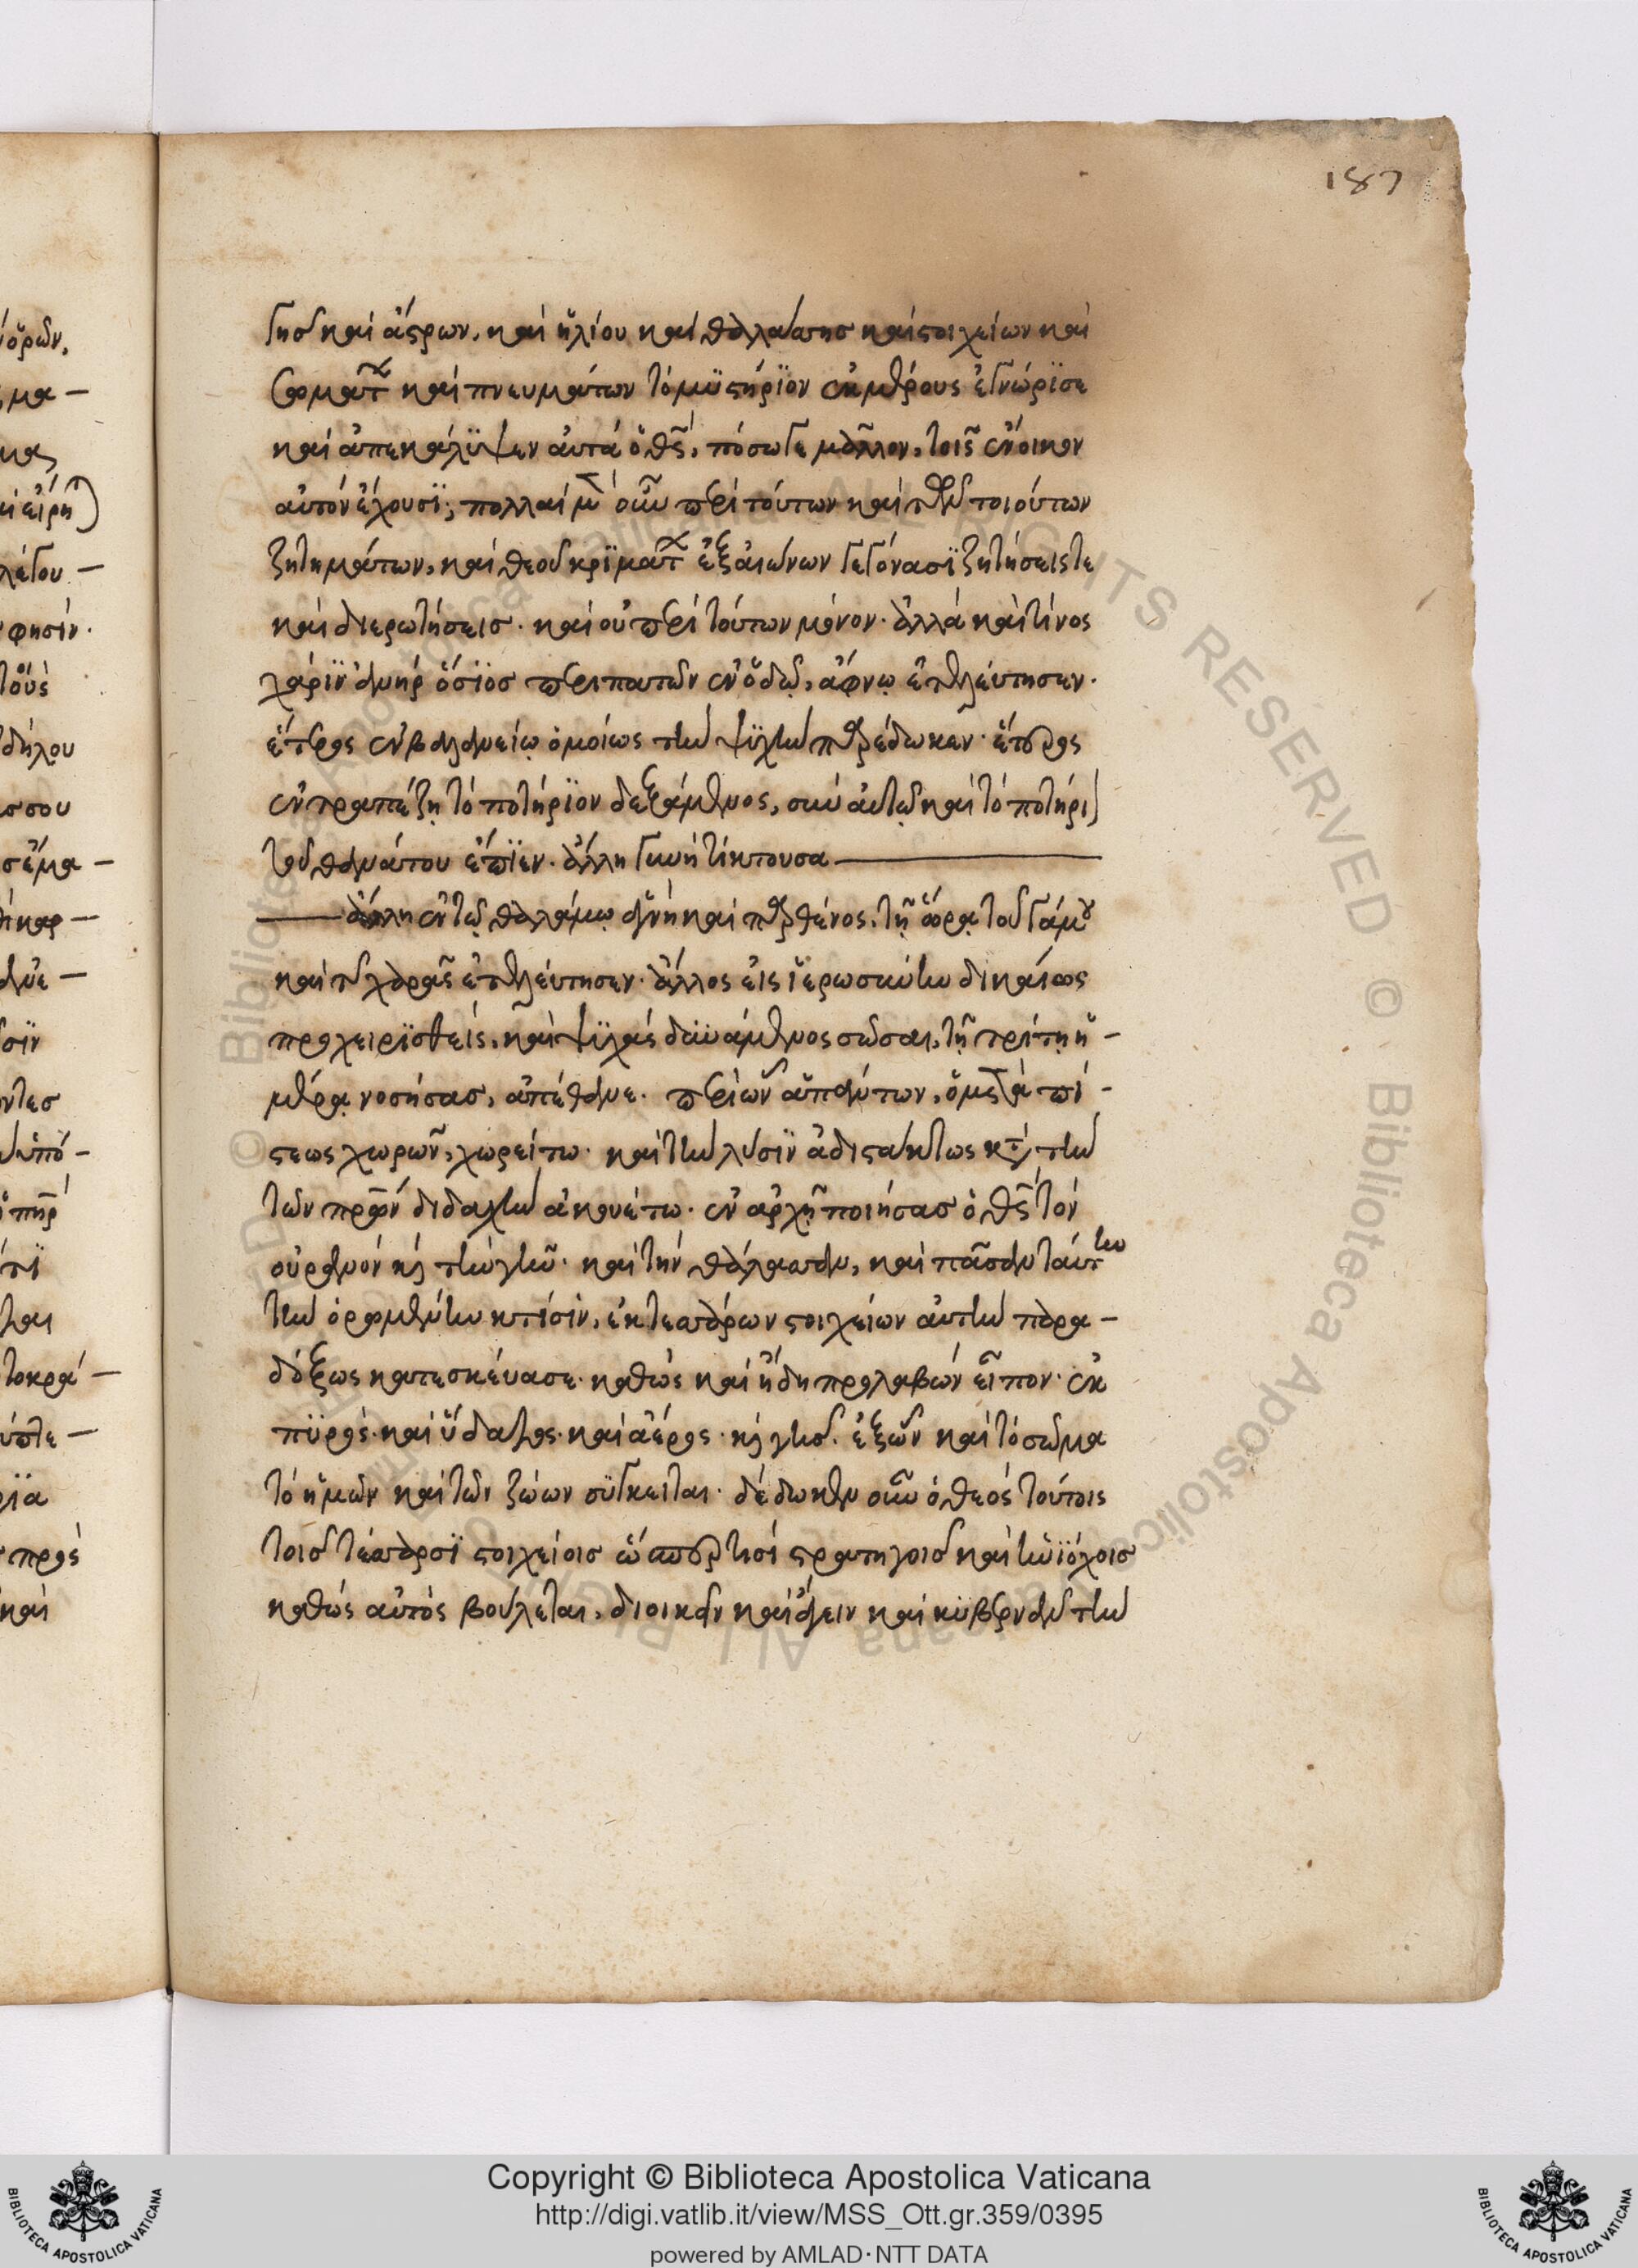 187
γῆς καὶ ἄστρων, καὶ ἡλίου καὶ θαλάσσης καὶ στοιχείων καὶ
καὶ πνευμάτων τὸ μυστήριον ἐκ μέρους ἐγνώρισε
καὶ ἀπεκάλυψεν αὐτὰ ὁ θς, πόσω γε μᾶλλον, τοῖς ἔνοικον
αὐτὸν ἔχουσι; πολλαὶ μ οὖν περὶ τούτων καὶ τῶν τοιούτων
ζητημάτων, καὶ θεοῦ κριμάτ ἐξ αἰώνων γεγόνασι ζητήσεις τε
καὶ διερωτήσεις. καὶ οὐ περὶ τούτων μόνον. ἀλλὰ καὶ τίνος
χάριν ἀνὴρ ὅσιος περιπατῶν ἐν ὁδῷ, ἄφνω ἐτελεύτησεν.
ἕτερος ἐν βαλανείῳ ὁμοίως τὴν ψυχὴν παρέδωκεν. ἕτερος
ἐν τραπέζῃ τὸ ποτήριον δεξάμενος, σὺν αὐτῷ καὶ τὸ ποτήρι
τοῦ θανάτου ἔπιεν. ἄλλη γυνὴ τίκτουσα —
— ἄλλη ἐν τῷ θαλάμῳ ἁγνὴ καὶ παρθένος, τῇ ὥρα τοῦ γάμου
καὶ τῆς χαρᾶς ἐτελεύτησεν. ἄλλος εἰς ἱερωσύνην δικαίως
προχειρισθεὶς, καὶ ψυχὰς δυνάμενος σῶσαι, τῇ τρίτῃ ἡ -
μέρᾳ νοσήσας, ἀπέθανε. περὶ ὧν ἁπάντων, ὁ μετὰ πί -
στεως χωρῶν, χωρείτω. καὶ τὴν λύσιν ἀδιστάκτως κτ τὴν
τῶν πρρν διδαχὴν ἀκουέτω. ἐν ἀρχῇ ποιήσας ὁ θς τὸν
οὐρανὸν κ τὴν γῆν. καὶ τὴν θάλασσαν, καὶ πᾶσαν ταύτην
τὴν ὁρωμένην κτίσιν, ἐκ τεσσάρων στοιχείων αὐτὴν παρα -
δόξως κατεσκεύασε. καθὼς καὶ ἤδη προλαβὼν εἶπον. ἐκ
πυρὸς. καὶ ὕδατος. καὶ ἀέρος. κ γῆς. ἐξ ὧν καὶ τὸ σῶμα
τὸ ἡμῶν καὶ τῶν ζώων σύγκειται. δέδωκεν οὖν ὁ θεὸς τούτοις
τοῖς τέσσαρσι στοιχείοις ὥσπερ τισὶ στρατηγοῖς καὶ ἡνιόχοις
καθὼς αὐτὸς βούλεται, διοικεῖν καὶ ἄγειν καὶ κυβερνᾶν τὴν
Copyright © Biblioteca Apostolica Vaticana
http://digi.vatlib.it/view/MSS_Ott.gr.359/0395
powered by AMLAD·NTT DATA
BIBLIOTECA APOSTOLICA VATICANA
BIBLIOTECA APOSTOLICA VATICANA